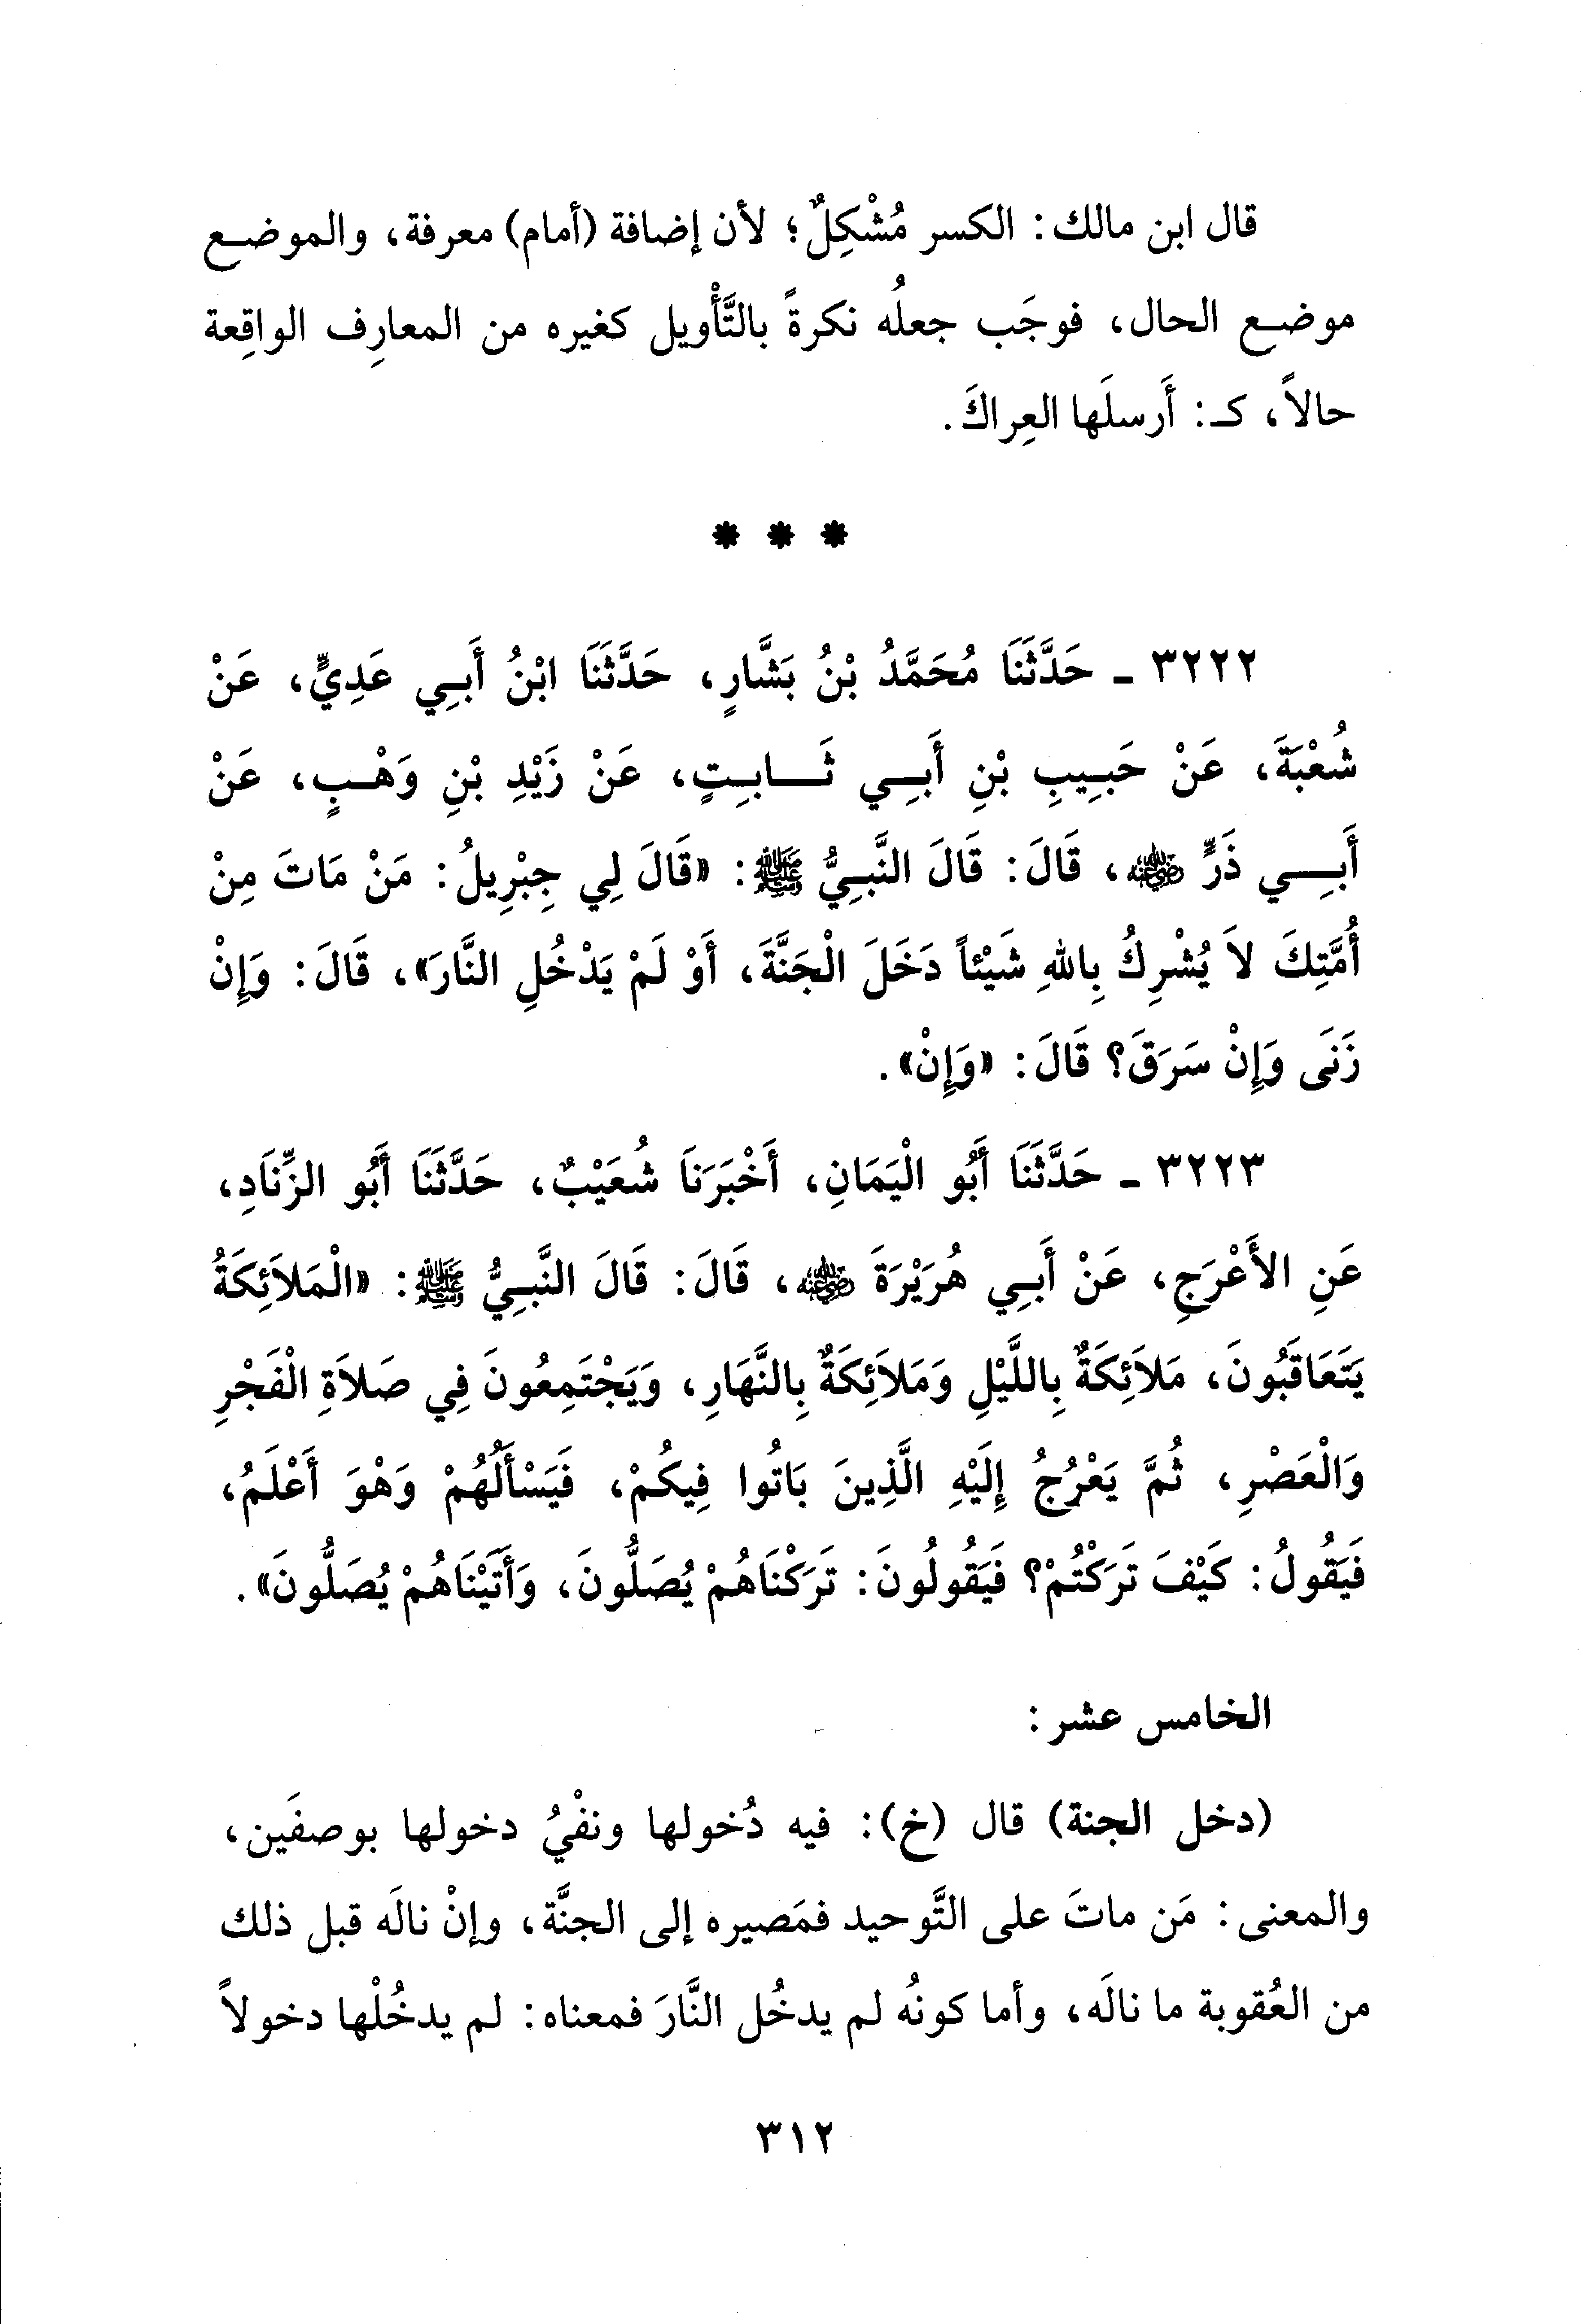 قال ابن مالك: الكسر مُشْكِلٌ؛ لأن إضافة (أمام) معرفة، والموضع
موضع الحال، فوجَب جعلُه نكرةً بالتَّأْويل كغيره من المعارِف الواقِعة
حالاً، كـ: أَرسلَها العِراكَ.
* * *
٣٢٢٢ - حَدَّثَنَا مُحَمَّدُ بْنُ بَشَّارٍ، حَدَّثَنَا ابْنُ أَبِي عَدِيٍّ، عَنْ
شُعْبَةَ، عَنْ حَبِيبِ بْنِ أَبِي ثَابِتٍ، عَنْ زَيْدِ بْنِ وَهْبٍ، عَنْ
أَبِي ذَرٍّ ﵁، قَالَ: قَالَ النَّبِيُّ ﷺ: «قَالَ لِي جِبْرِيلُ: مَنْ مَاتَ مِنْ
أُمَّتِكَ لاَ يُشْرِكُ بِاللهِ شَيْئاً دَخَلَ الْجَنَّةَ، أَوْ لَمْ يَدْخُلِ النَّارَ»، قَالَ: وَإِنْ
زَنَى وَإِنْ سَرَقَ؟ قَالَ: «وَإِنْ».
٣٢٢٣ - حَدَّثَنَا أَبُو الْيَمَانِ، أَخْبَرَنَا شُعَيْبٌ، حَدَّثَنَا أَبُو الزِّنَادِ،
عَنِ الأَعْرَجِ، عَنْ أَبِي هُرَيْرَةَ ﵁، قَالَ: قَالَ النَّبِيُّ ﷺ: «الْمَلاَئِكَةُ
يَتَعَاقَبُونَ، مَلاَئِكَةٌ بِاللَّيْلِ وَمَلاَئِكَةٌ بِالنَّهَارِ، وَيَجْتَمِعُونَ فِي صَلاَةِ الْفَجْرِ
وَالْعَصْرِ، ثُمَّ يَعْرُجُ إِلَيْهِ الَّذِينَ بَاتُوا فِيكُمْ، فَيَسْأَلُهُمْ وَهْوَ أَعْلَمُ،
فَيَقُولُ: كَيْفَ تَرَكْتُمْ؟ فَيَقُولُونَ: تَرَكْنَاهُمْ يُصَلُّونَ، وَأَتَيْنَاهُمْ يُصَلُّونَ».
الخامس عشر:
(دخل الجنة) قال (خ): فيه دُخولها ونفْيُ دخولها بوصفَين،
والمعنى: مَن ماتَ على التَّوحيد فمَصيره إلى الجنَّة، وإنْ نالَه قبل ذلك
من العُقوبة ما نالَه، وأما كونُه لم يدخُل النَّارَ فمعناه: لم يدخُلْها دخولاً
٣١٢